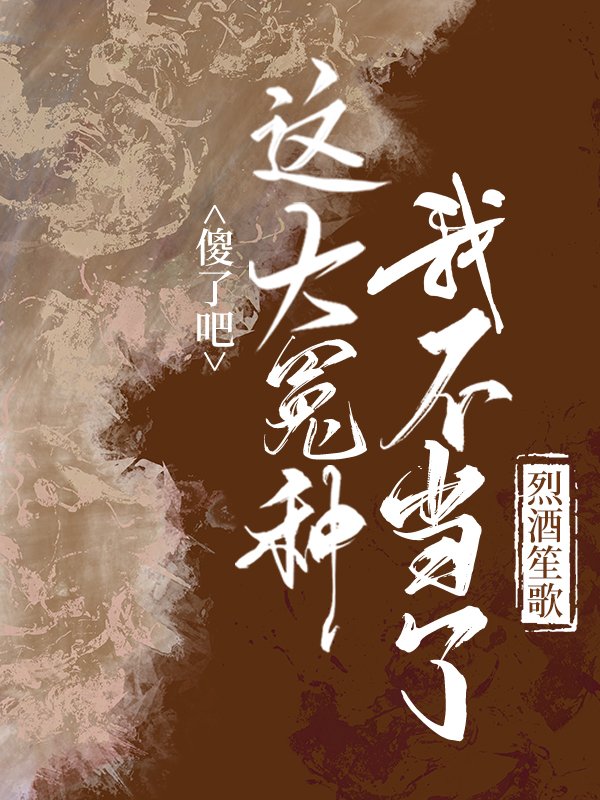 <傻了吧>
这大冤种
我不当了
烈酒笙歌